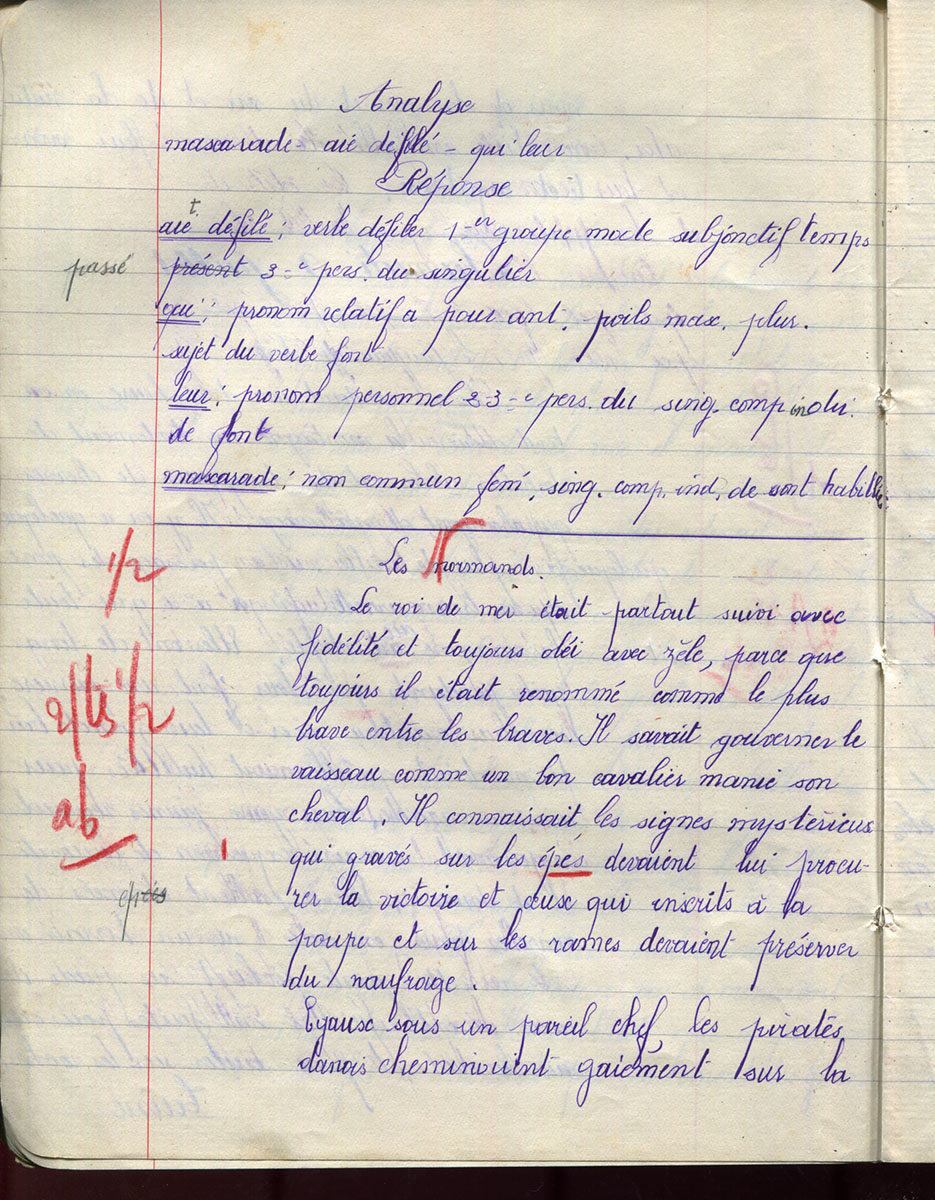 Analyse
mascarade - aie défilé - qui leur
Réponse
t
aie défilé ; verbe défiler 1er groupe mode subjonctif temps
passé présent 3e pers. du singulier
qui ; pronom relatif a pour ant. poils mas. plur.
sujet du verbe font
leur ; pronom personnel 3e pers. du sing. comp indi.
de font
mascarade ; nom commun fém. sing. comp. ind. de sont habillé
Les Normands.
1/2
Le roi de mer était partout suivi avec
fidélité et toujours obéi avec zèle, parce que
toujours il était renommé comme le plus
brave entre les braves. Il savait gouverner le
vaisseau comme un bon cavalier manie son
cheval. Il connaissait les signes mystérieus
ab
qui gravés sur les épés devaient lui procu-
rer la victoire et ceux qui inscrits à la
poupe et sur les rames devaient préserver
du naufrage.
Egaux sous un pareil chef, les pirates
danois cheminaient gaiément sur la